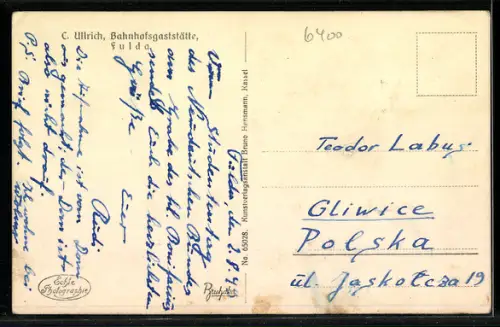 C. Ullrich, Bahnhofsgaststätte,
Fulda
6400
Fulda, den 2.8.49
Vom Studententag
des Neudeutschen Bundes
am Grabe des hl. Bonifatius
sendet Euch die herzlichsten
Grüße
Euer
Rudi
Die Aufnahme ist vom Dom
aus gemacht, der Dom ist
also nicht drauf.
P.S. Brief folgt. Ich wohne bei
Echte
Photographie
No. 65028. Kunstverlagsanstalt Bruno Hansmann, Kassel
Teodor Labus
Gliwice
Polska
ul. Jaskółcza 19